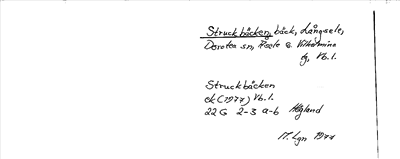 Struckbäcken, bäck, Långsele,
Dorotea sn, Åsele o. Vilhelmina
tg, Vb.l.
Struckbäcken
ek (1977) Vb.l.
22 G 2-3 a-b Högland
M. Lgn 1977